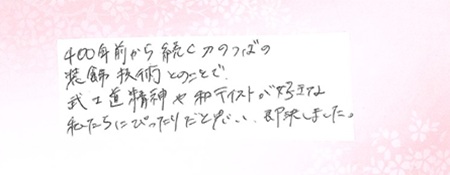 400年前から続く刀のつばの
装飾技術とのことで、
武士道精神や和テイストが好きな
私たちにぴったりだと思い、即決しました。